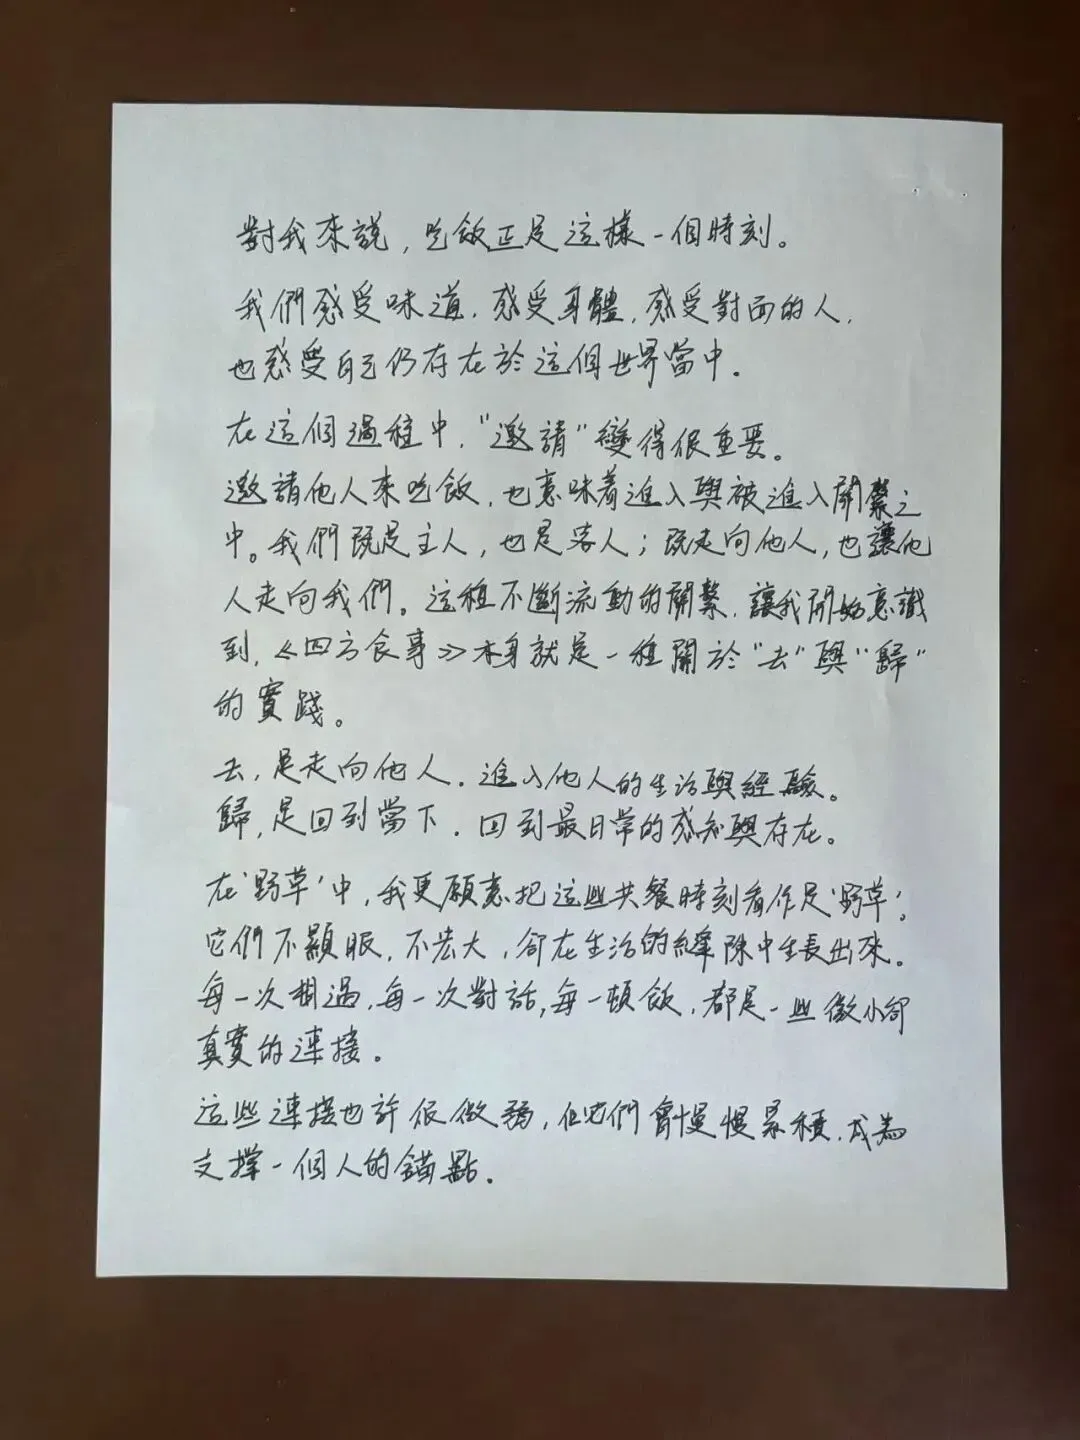 對我來說，吃飯正是這樣一個時刻。
我們感受味道，感受身體，感受對面的人，
也感受自己仍存在於這個世界當中。
在這個過程中，"邀請"變得很重要。
邀請他人來吃飯，也意味着進入與被進入關繫之
中。我們既是主人，也是客人；既走向他人，也讓他
人走向我們。這種不斷流動的關繫，讓我開始意識
到，《四方食事》本身就是一種關於"去"與"歸"
的實踐。
去，是走向他人，進入他人的生活與經驗。
歸，是回到當下，回到最日常的感知與存在。
在'野草'中，我更願意把這些共餐時刻看作是'野草'，
它們不顯眼，不宏大，卻在生活的縫隙中生長出來。
每一次相遇，每一次對話，每一頓飯，都是一些微小卻
真實的連接。
這些連接也許很微弱，但它們會慢慢累積，成為
支撐一個人的錨點。